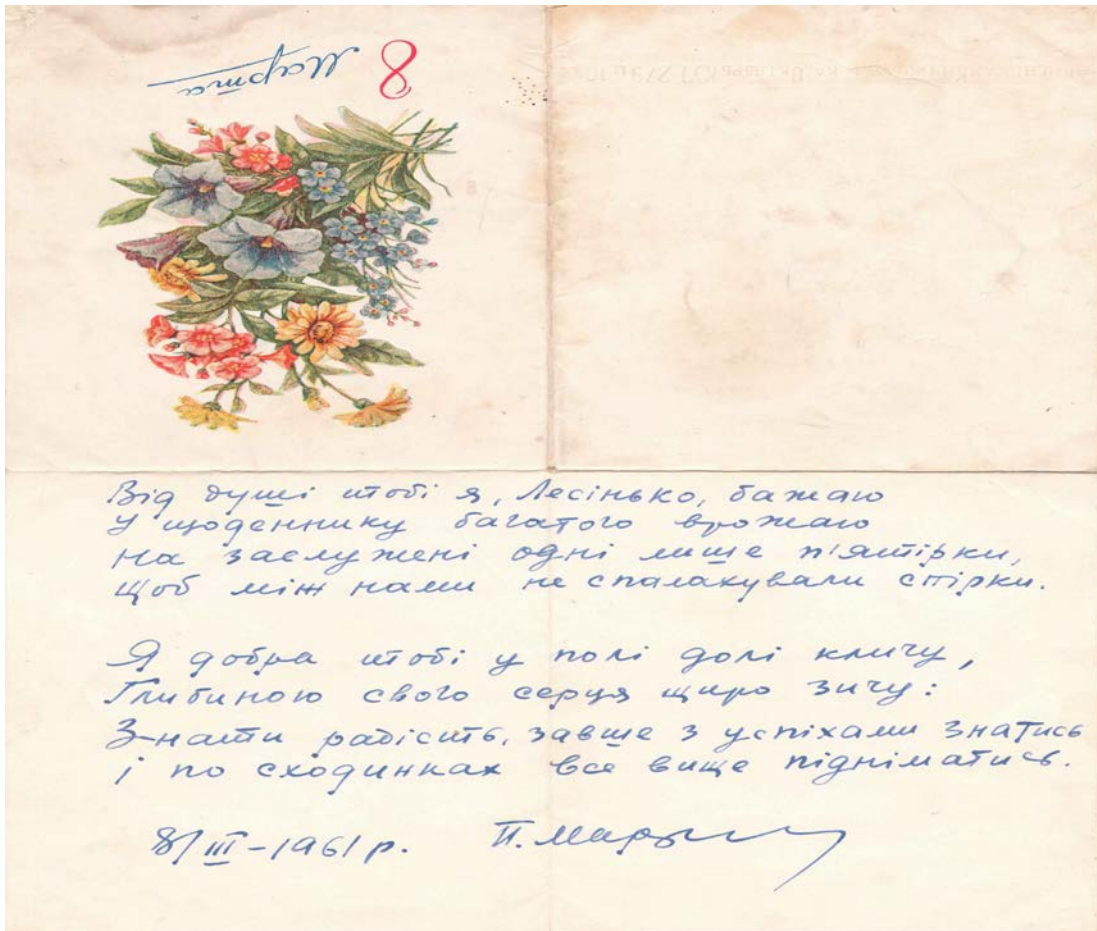 8
Марта
Від душі тобі я, Лесінько, бажаю
У щоденнику багатого врожаю
На заслужені одні лише п'ятірки,
Щоб між нами не спалахували стірки.
Я добра тобі у полі долі кличу,
Глибиною свого серця щиро зичу:
Знати радість, завше з успіхами знатись
і по сходинках все вище підніматись.
8/III-1961 р. П.